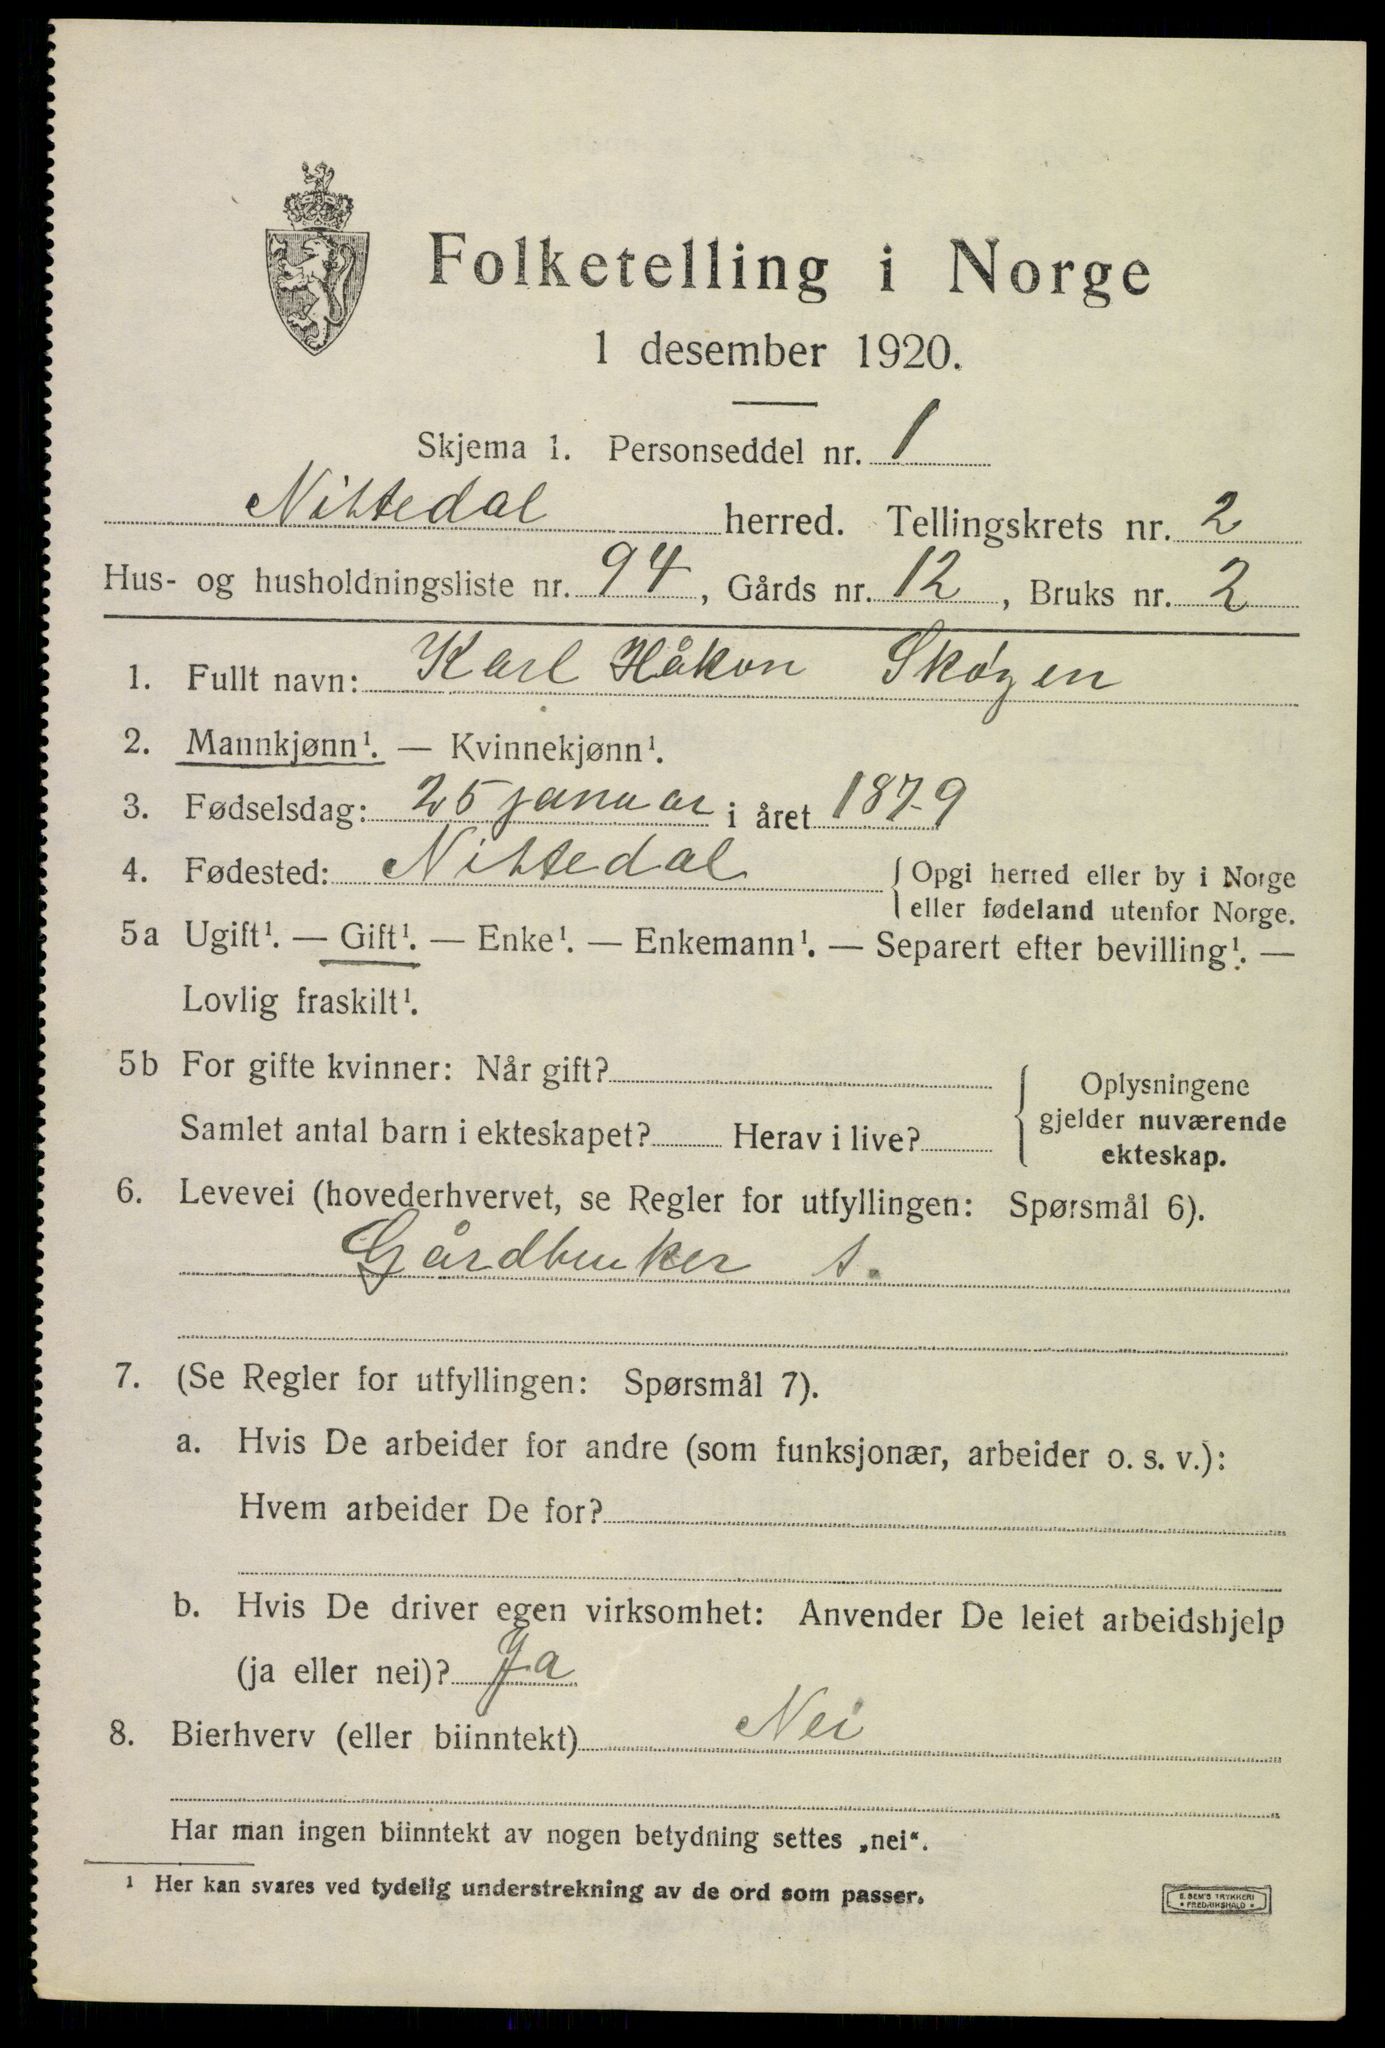 Folketelling i Norge
1 desember 1920.
Skjema 1. Personseddel nr. 1
Nittedal herred. Tellingskrets nr. 2
Hus- og husholdningsliste nr. 94, Gårds nr. 12, Bruks nr. 2
1. Fullt navn: Karl Håkon Skøyen
2. Mannkjønn¹. — Kvinnekjønn¹.
3. Fødselsdag: 25 januar i året 1879
4. Fødested: Nittedal { Opgi herred eller by i Norge
eller fødeland utenfor Norge.
5a Ugift¹. — Gift¹. — Enke¹. — Enkemann¹. — Separert efter bevilling¹. —
Lovlig fraskilt¹.
5b For gifte kvinner: Når gift?
Samlet antal barn i ekteskapet? Herav i live?
{ Oplysningene
gjelder nuværende
ekteskap.
6. Levevei (hovederhvervet, se Regler for utfyllingen: Spørsmål 6).
Gårdbruker s.
7. (Se Regler for utfyllingen: Spørsmål 7).
a. Hvis De arbeider for andre (som funksjonær, arbeider o. s. v.):
Hvem arbeider De for?
b. Hvis De driver egen virksomhet: Anvender De leiet arbeidshjelp
(ja eller nei)? Ja
8. Bierhverv (eller biinntekt) Nei
Har man ingen biinntekt av nogen betydning settes „nei“.
¹ Her kan svares ved tydelig understrekning av de ord som passer.
E. SEM'S TRYKKERI
* FREDRIKSHALD *